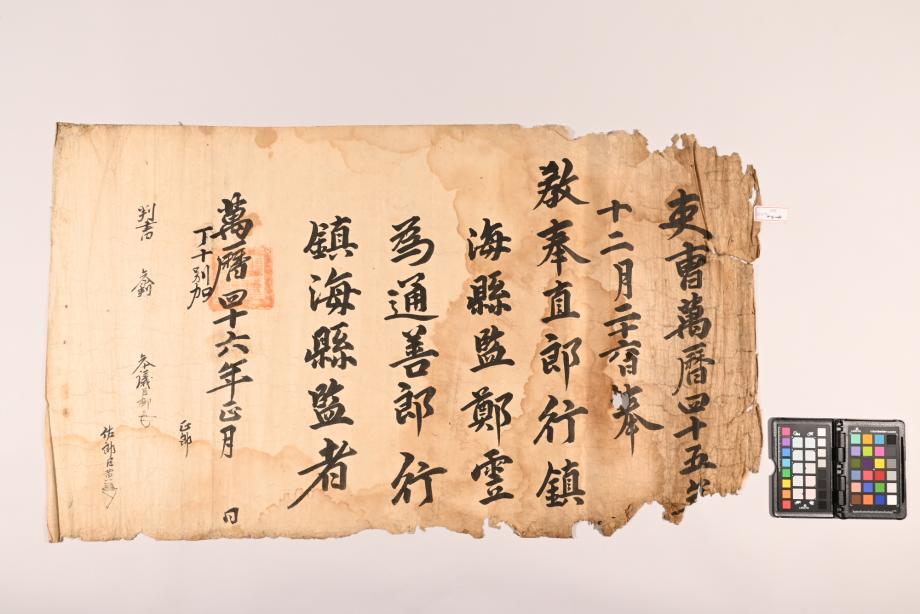 吏曹萬曆四十五年
十二月二十六日奉
教奉直郎行鎮
海縣監鄭霊
為通善郎行
鎮海縣監者
萬曆四十六年正月 日
丁十別加
判書 參判 參議臣 正郎
佐郎臣